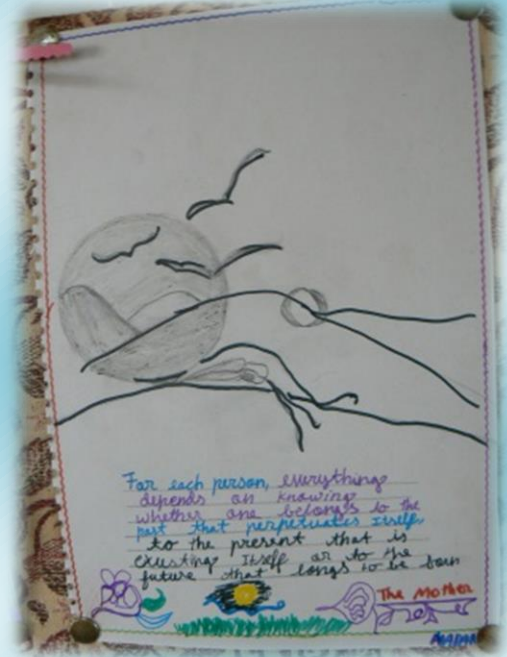 For each person, everything
depends on knowing
whether one belongs to the
past that perpetuates itself,
to the present that is
existing Itself or to the
future that longs to be born
The Mother